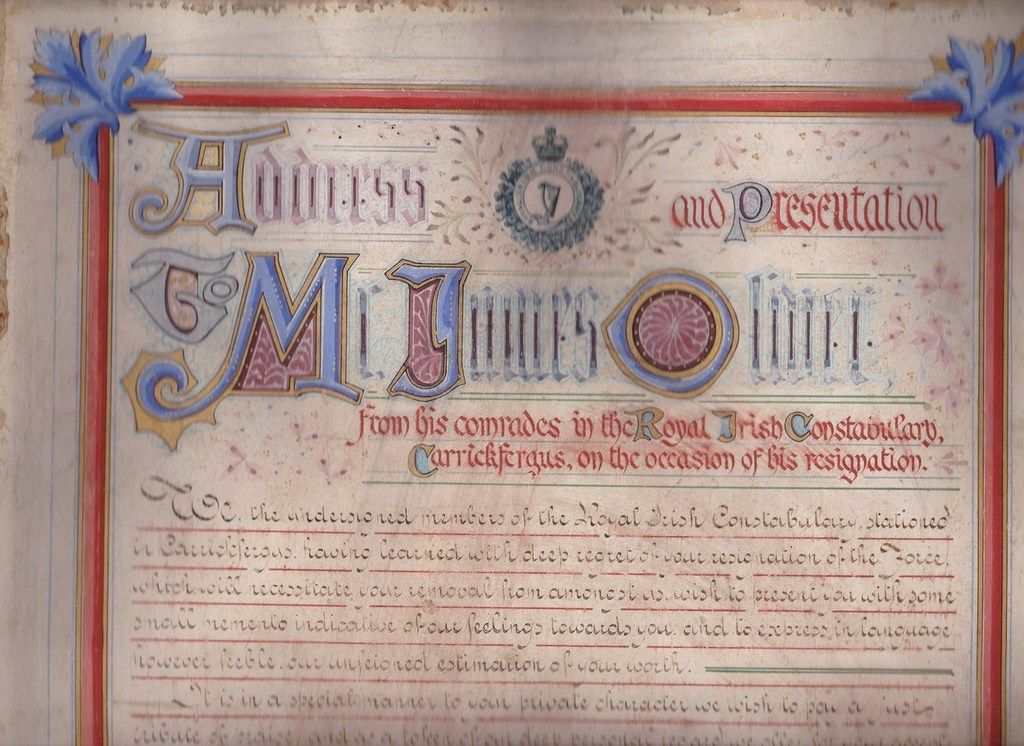 Address and Presentation
To Mr. James Oliver,
from his comrades in the Royal Irish Constabulary,
Carrickfergus, on the occasion of his resignation.
We, the undersigned members of the Royal Irish Constabulary, stationed
in Carrickfergus, having learned with deep regret of your resignation of the Force,
which will necessitate your removal from amongst us, wish to present you with some
small memento indicative of our feelings towards you, and to express in language
however feeble, our unfeigned estimation of your worth.
It is in a special manner to your private character we wish to pay a just
tribute of praise, and as a token of our deep personal regard we offer